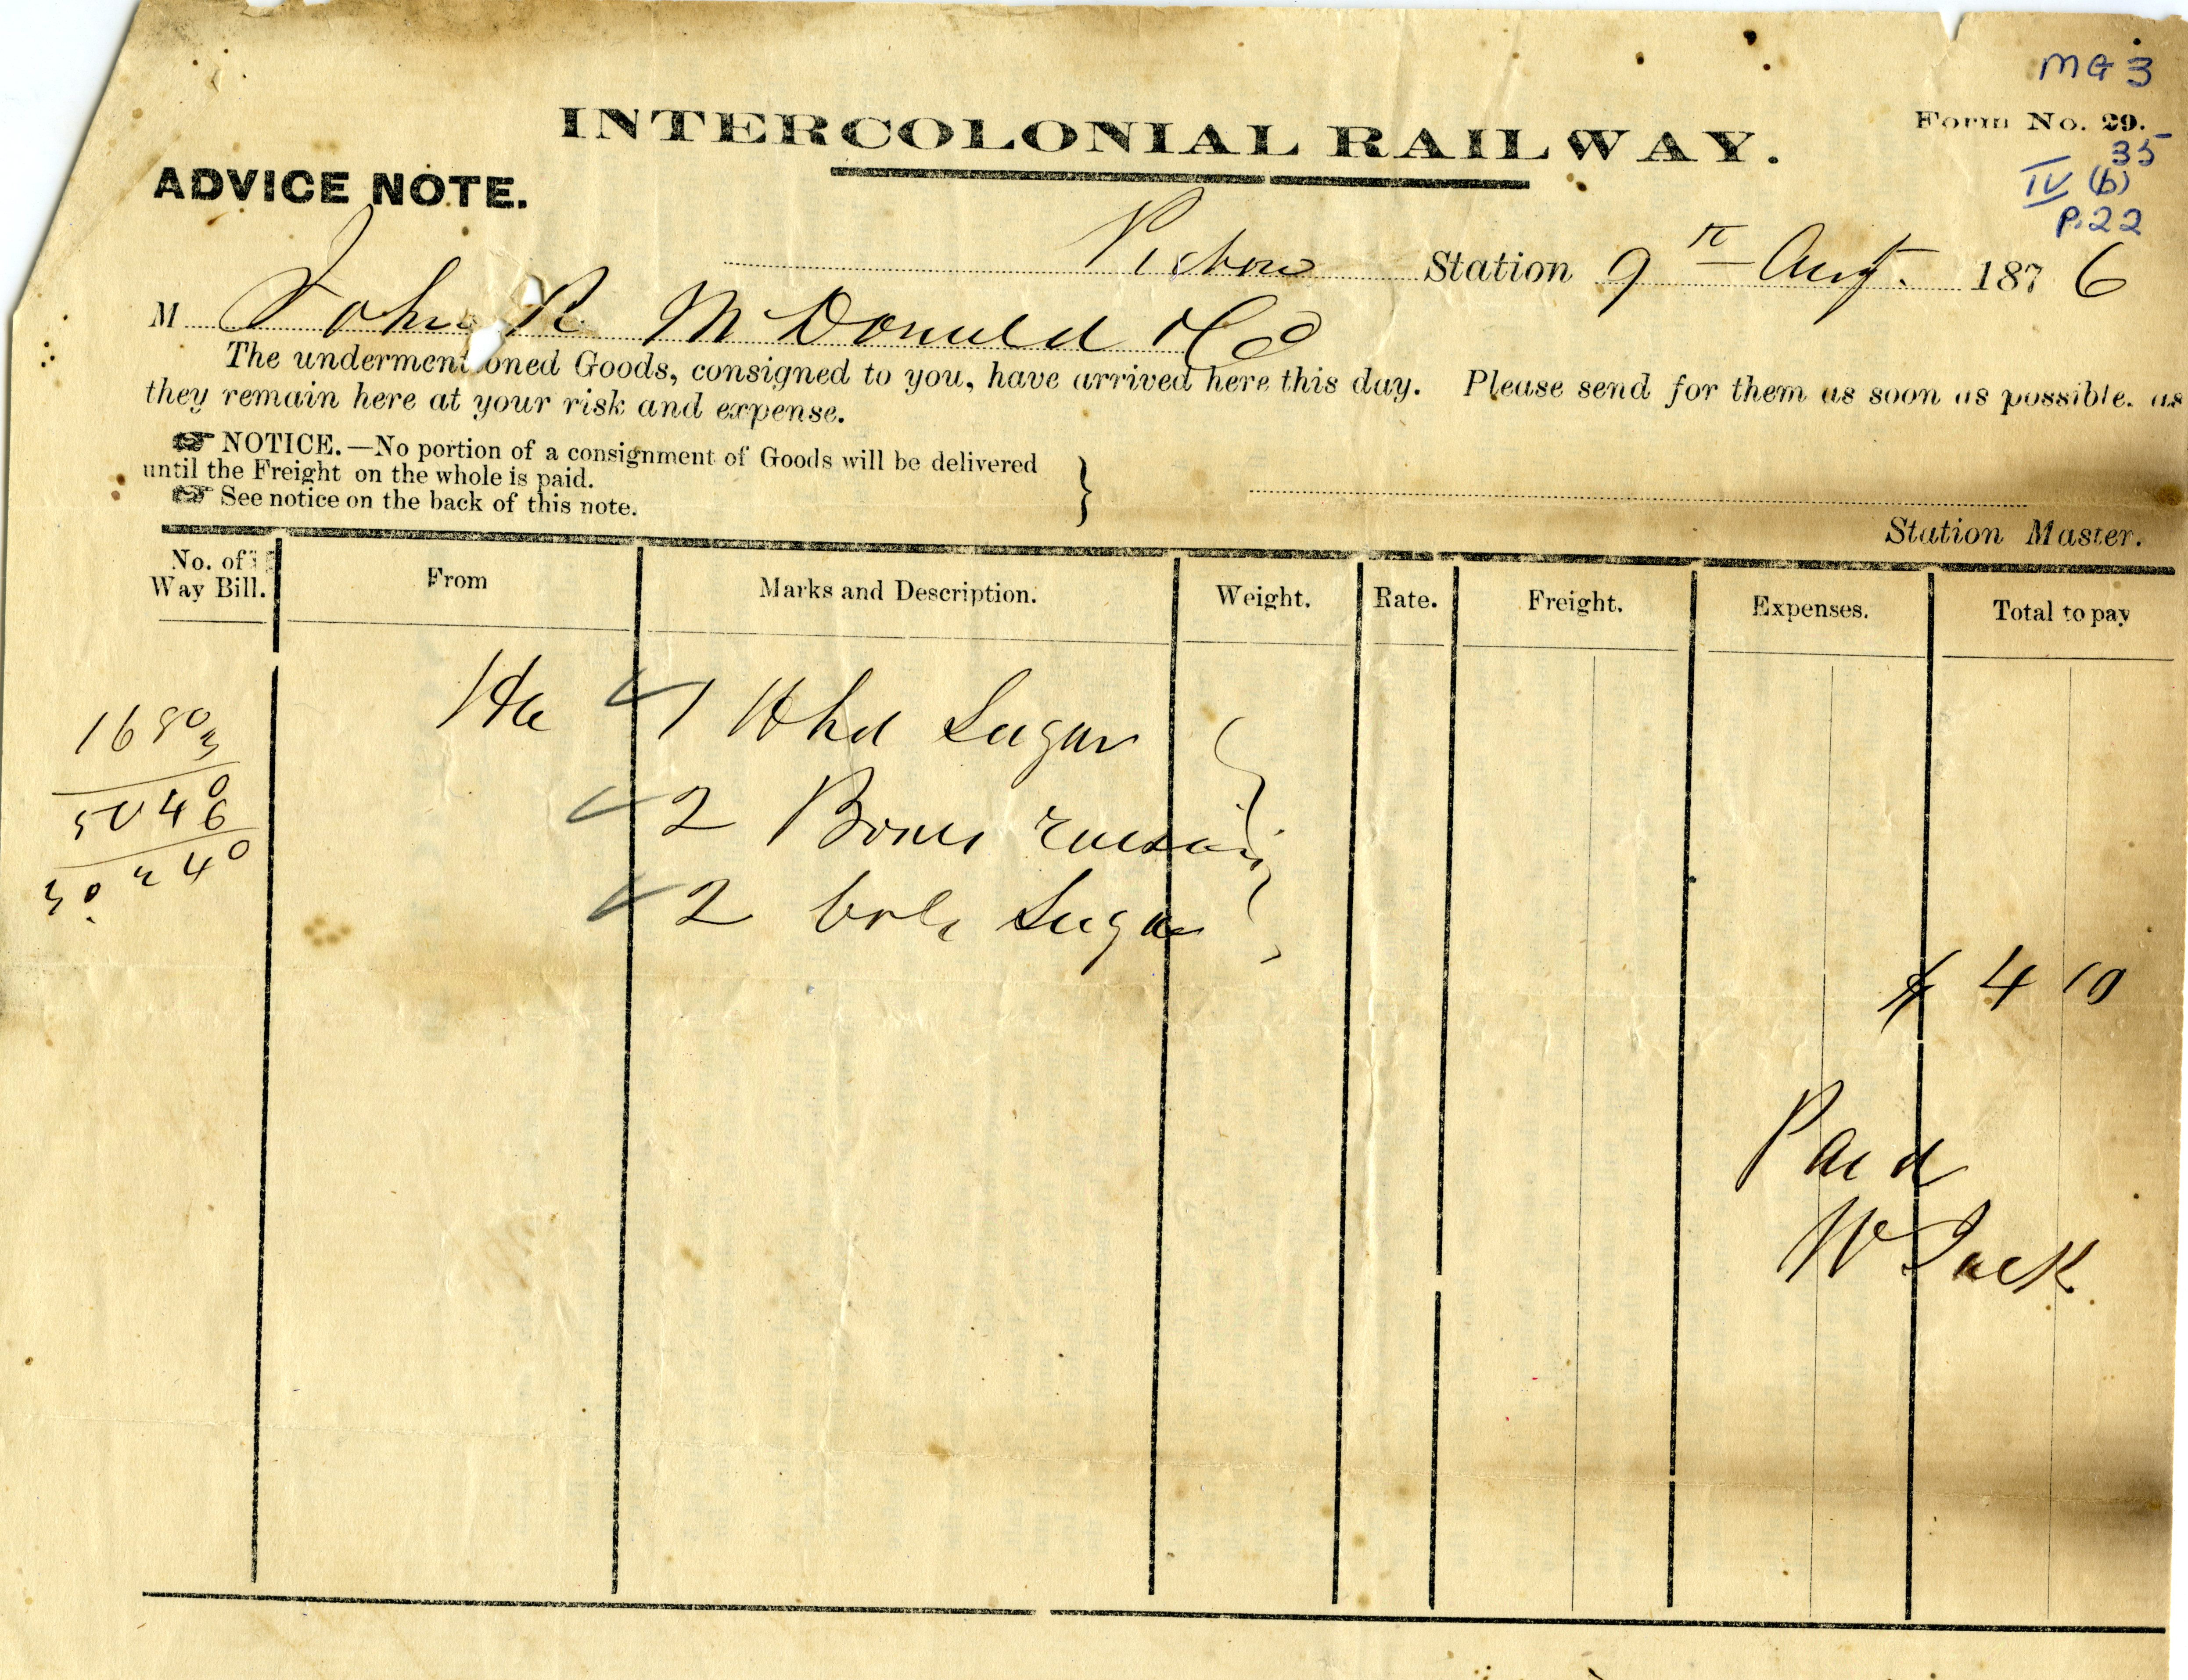 MG 3
INTERCOLONIAL RAILWAY.
Form No. 29.
35
IV (b)
P.22
ADVICE NOTE.
Pictou Station 9th Augt. 1876
M John R McDonald & Co
The undermentioned Goods, consigned to you, have arrived here this day. Please send for them as soon as possible, as
they remain here at your risk and expense.
☞ NOTICE.—No portion of a consignment of Goods will be delivered
until the Freight on the whole is paid.
☞ See notice on the back of this note.
Station Master.
No. of Way Bill. From Marks and Description. Weight. Rate. Freight. Expenses. Total to pay
Hx 1 Hhd Sugar
1680
3
2 Boxes raisins
5040
6
2 brls Sugar
30.240
$ 4 10
Paid
W Jack